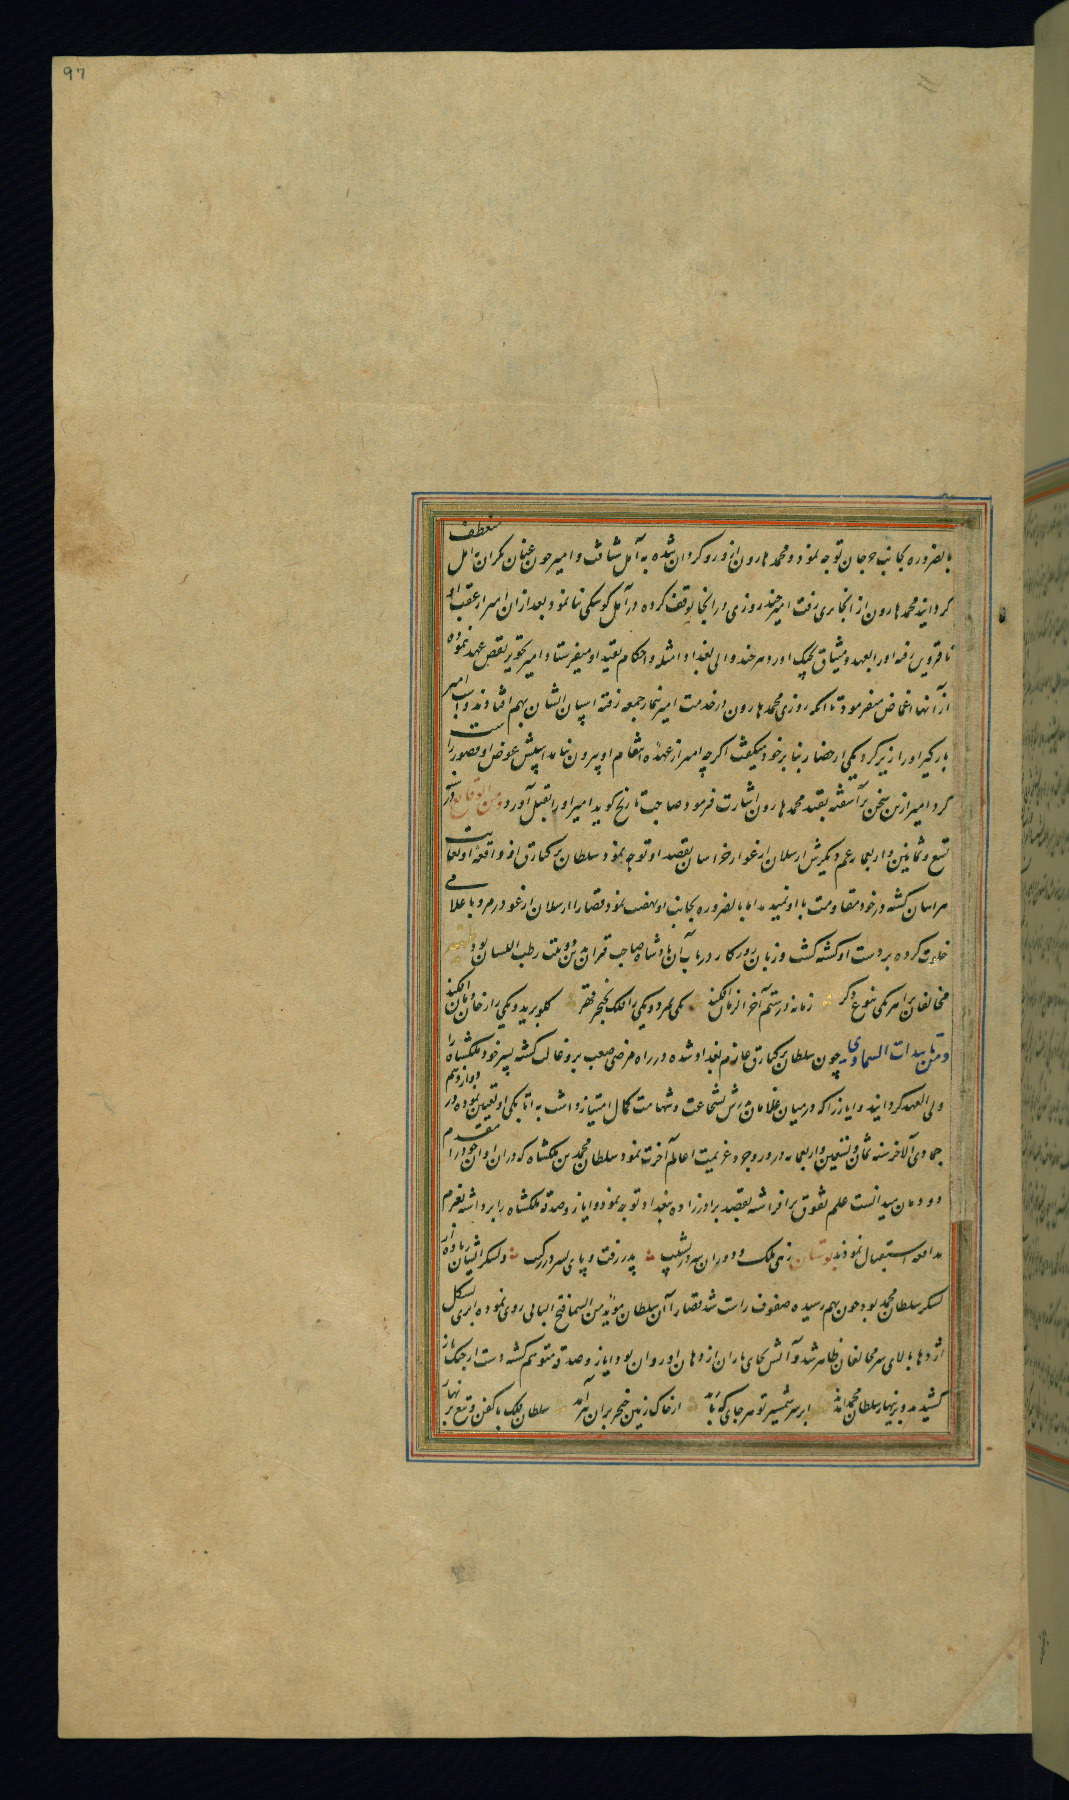 97
بالضروره بجانب جوجان توجه نمود و محمد هارون ازو رو کردان شده به آمل شتافت و امیر چون عنان یکران به آمل منعطف
کردانید محمد هارون از آنجا بری رفت امیر چند روزی در آنجا توقف کرده در آمل کوشکی بنا نمود بعد از آن امیر از عقب او
تا قزوین رفته او را بعهد و میثاق بچنک آورد هر چند والی بغداد امثله و احکام بقید او میفرستاد امیر تجویز نقض عهد ننموده
از آنها اغماض میفرمود تا آنکه روزی محمد هارون از خدمت امیر بنماز جمعه رفته اسپان ایشان بهم افتادند و اسب امیر
بارکیر او را زیر کرد یکی از حضار بنا بر خود میکفت اکرچه امیر از عهده انتقام او بیرون نیامد اسپش عوض او قصور را
کرد امیر ازین سخن بر آشفته بقتل محمد هارون اشارت فرمود صاحب تاریخ کوید امیر او را بقتل آورد و من الوقایع در سنه
تسع و ثمانین و اربعمایه عم دیکرش ارسلان ارغو از خراسان بقصد او توجه نمود سلطان برکیارق از واقعه او بغایت
هراسان کشته در خود مقاومت با او نمیدید اما بالضروره بجانب او نهضت نمود قضا را ارسلان ارغو در مرو با غلامی
خلوت کرده بر دست او کشته کشت و زبان روزکار در باب آن پادشاه صاحب قران بدین دو بیت رطب اللسان بود شعر
مخالفان ترا هر یکی بنوع دکر زمانه در ستم آخر الزمان افکند یکی بمرد و یکی را فلک بخنجر قهر کلو برید و یکی را ز خان و مان افکند
و من تاییدات السماوی چون سلطان برکیارق عازم بغداد شده در راه مرضی صعب برو غالب کشته پسر خود ملکشاه را
ولی العهد کردانید و ایاز را که در میان غلامانش بشجاعت و شهامت کمال امتیاز داشت به اتابکی او تعیین نموده در دوازدهم
جمادی الاخر سنه ثمان و تسعین و اربعمایه در بروجرد عزیمت عالم آخرت نمود سلطان محمد بن ملکشاه که در آن اوان خود را مقدم
دودمان میدانست علم تفوق بر افراشته بقصد برادرزاده ببغداد توجه نمود و ایاز و صدقه ملکشاه را برداشته بعزم
مدافعه استقبال نمودند بوستان زهی ملک و دوران سر در نشیب پدر رفت و پای پسر در رکیب و لشکر ایشان زیاده از
لشکر سلطان محمد بود چون بهم رسیده صفوف راست شد قضا را آن سلطان موید من السما فتح البابی روی نموده ابری بشکل
اژدها بالای سر مخالفان ظاهر شد و آتش بجای باران از دهان او روان بود ایاز و صدقه متوهم کشته دست از جنک باز
کشیدند و بزینهار سلطان محمد آمدند ابر سر شمشیر تو هر جای که بارد از خاک زمین خنجر بران بر آمد سلطان ملک با کفن و تیغ بزنهار